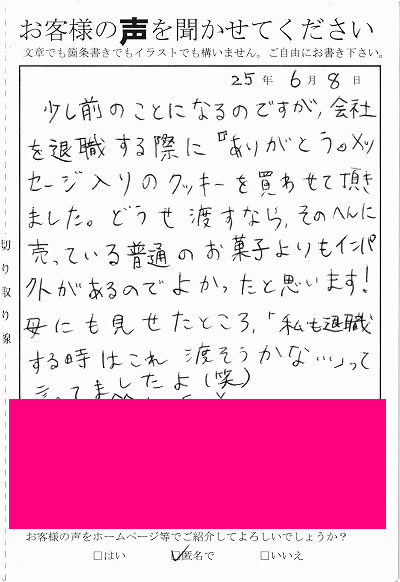 お客様の声を聞かせてください
文章でも箇条書きでもイラストでも構いません。ご自由にお書き下さい。
25年 6月 8日
少し前のことになるのですが、会社
を退職する際に『ありがとう。メッ
セージ入りのクッキーを買わせて頂き
ました。どうせ渡すなら、そのへんに
売っている普通のお菓子よりもインパ
クトがあるのでよかったと思います!
母にも見せたところ、「私も退職
する時はこれ 渡そうかな…」って
言ってましたよ(笑)
切り取り線
お客様の声をホームページ等でご紹介してよろしいでしょうか?
□はい ☑匿名で □いいえ